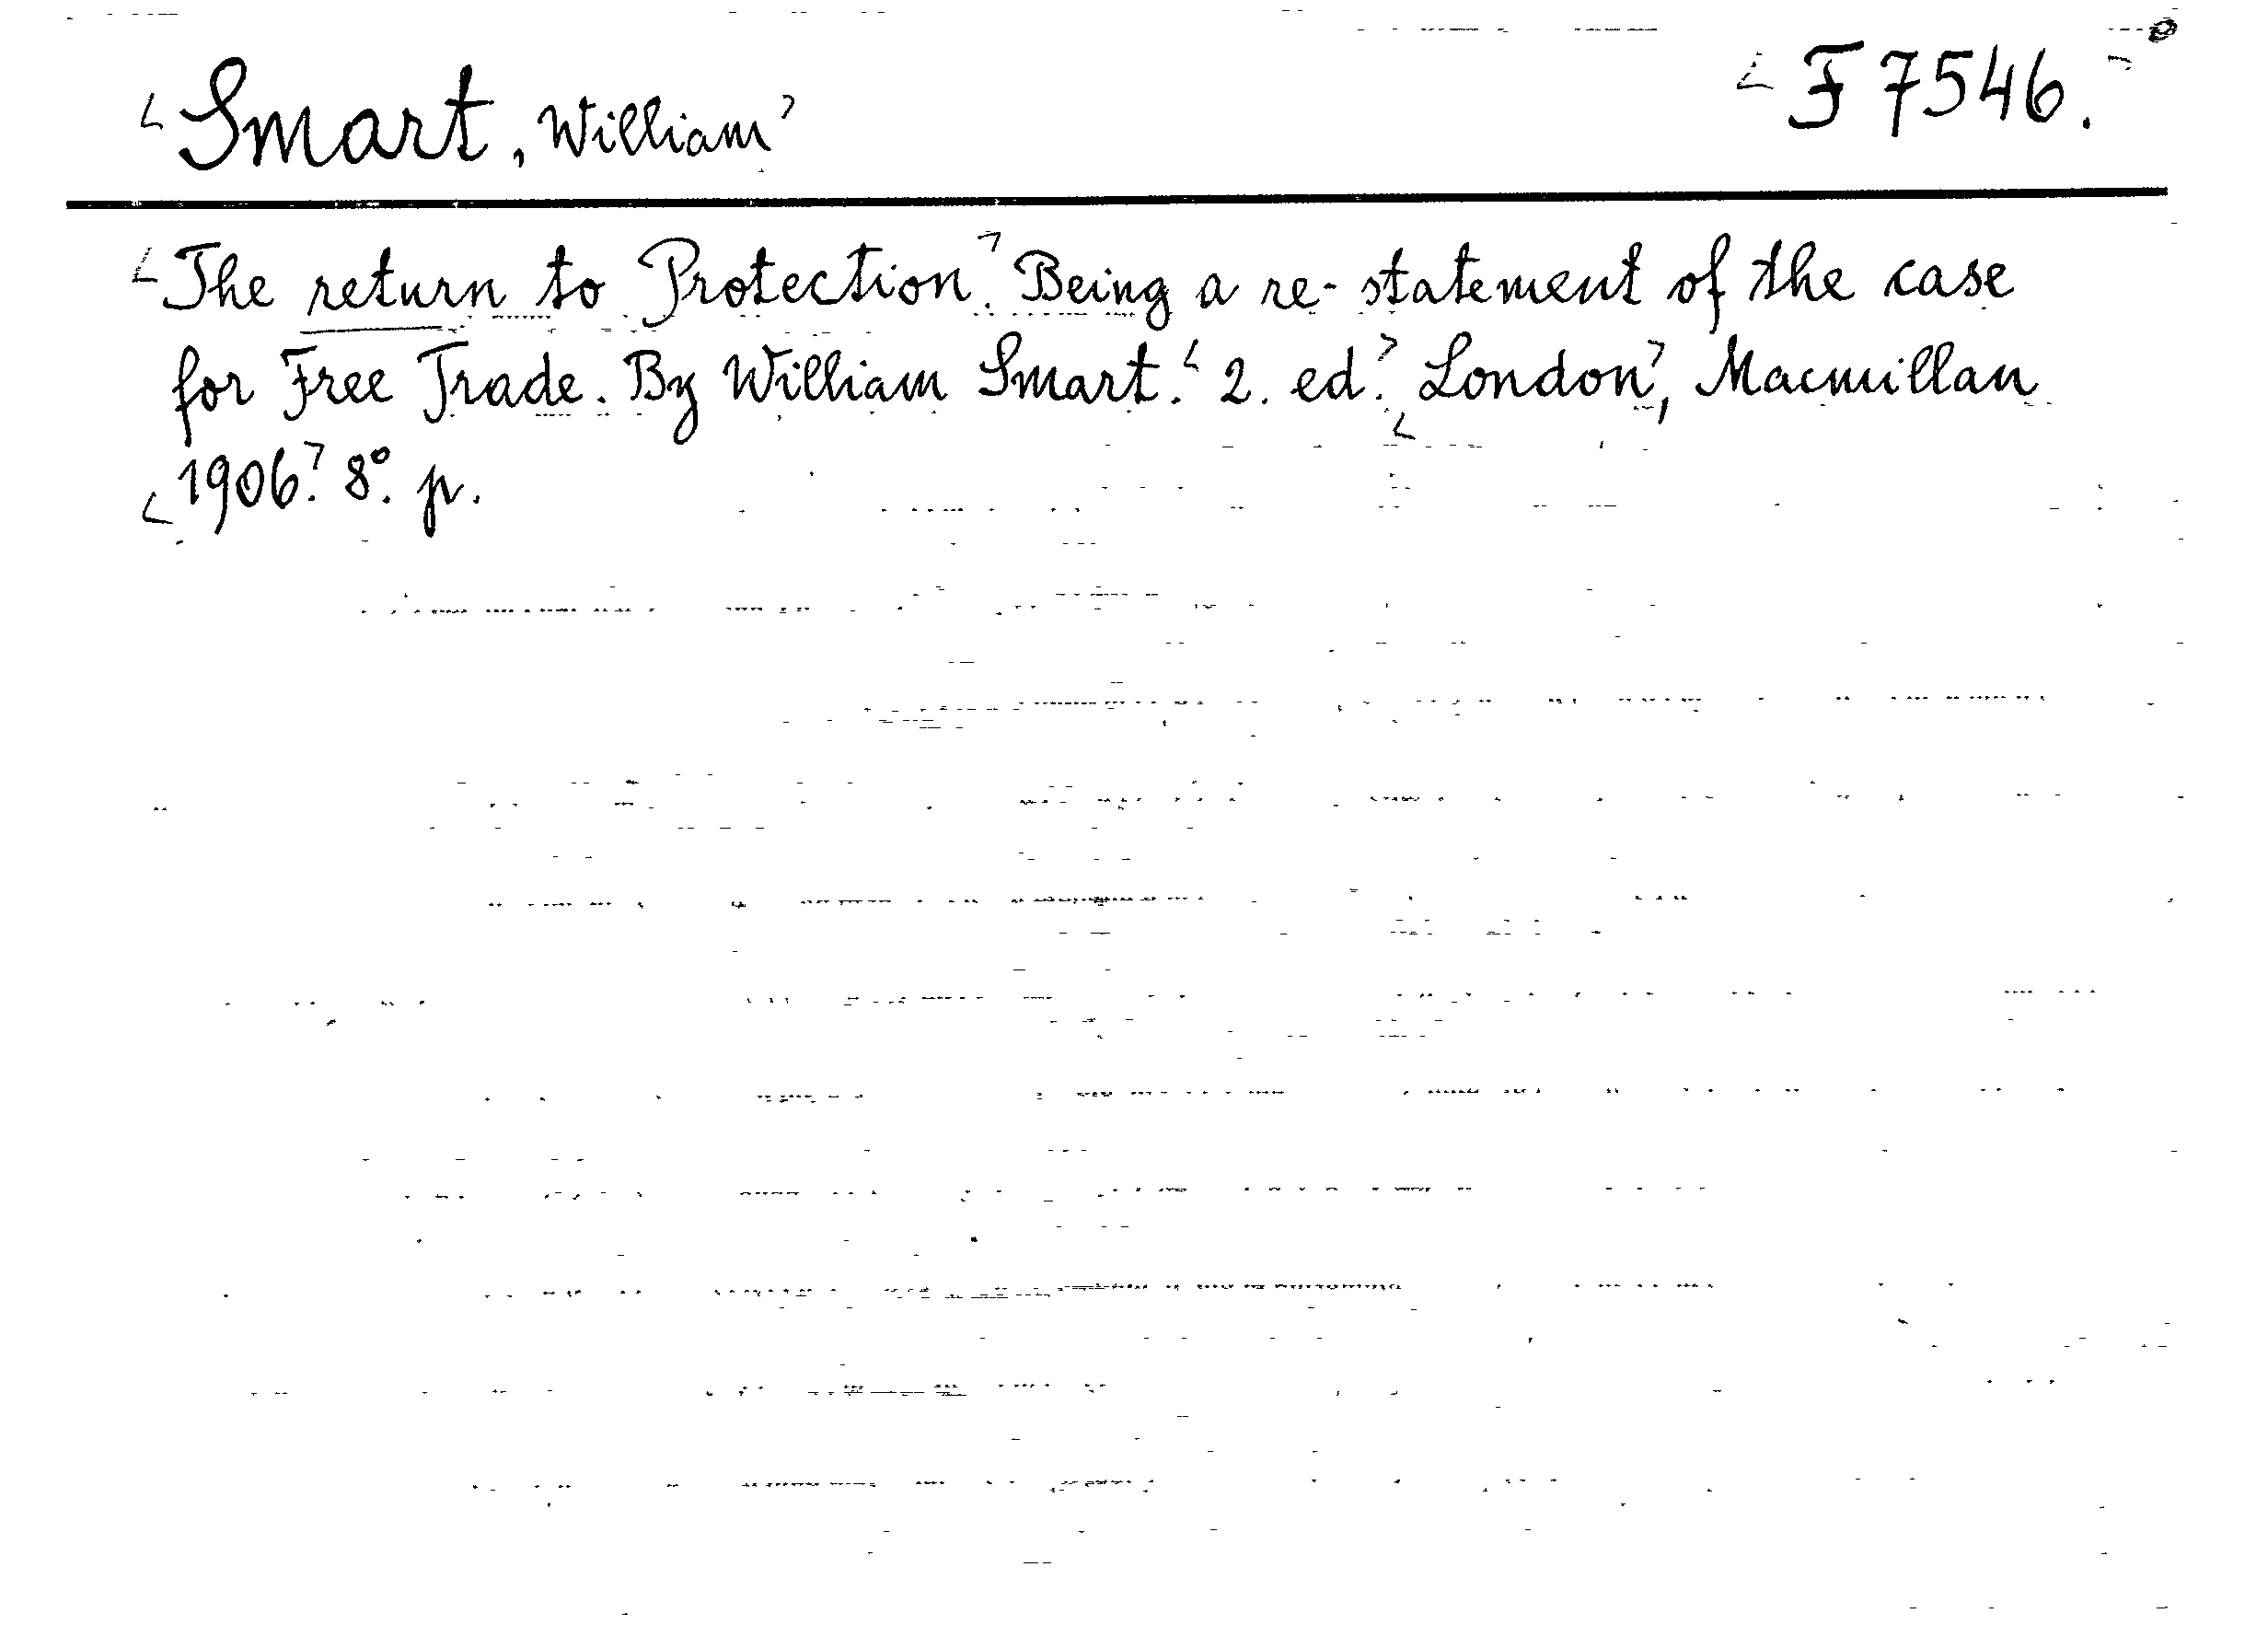 Smart, William
F 7546.
The return to Protection. Being a re-statement of the case
for Free Trade. By William Smart. 2. ed. London, Macmillan
1906. 8°. p.